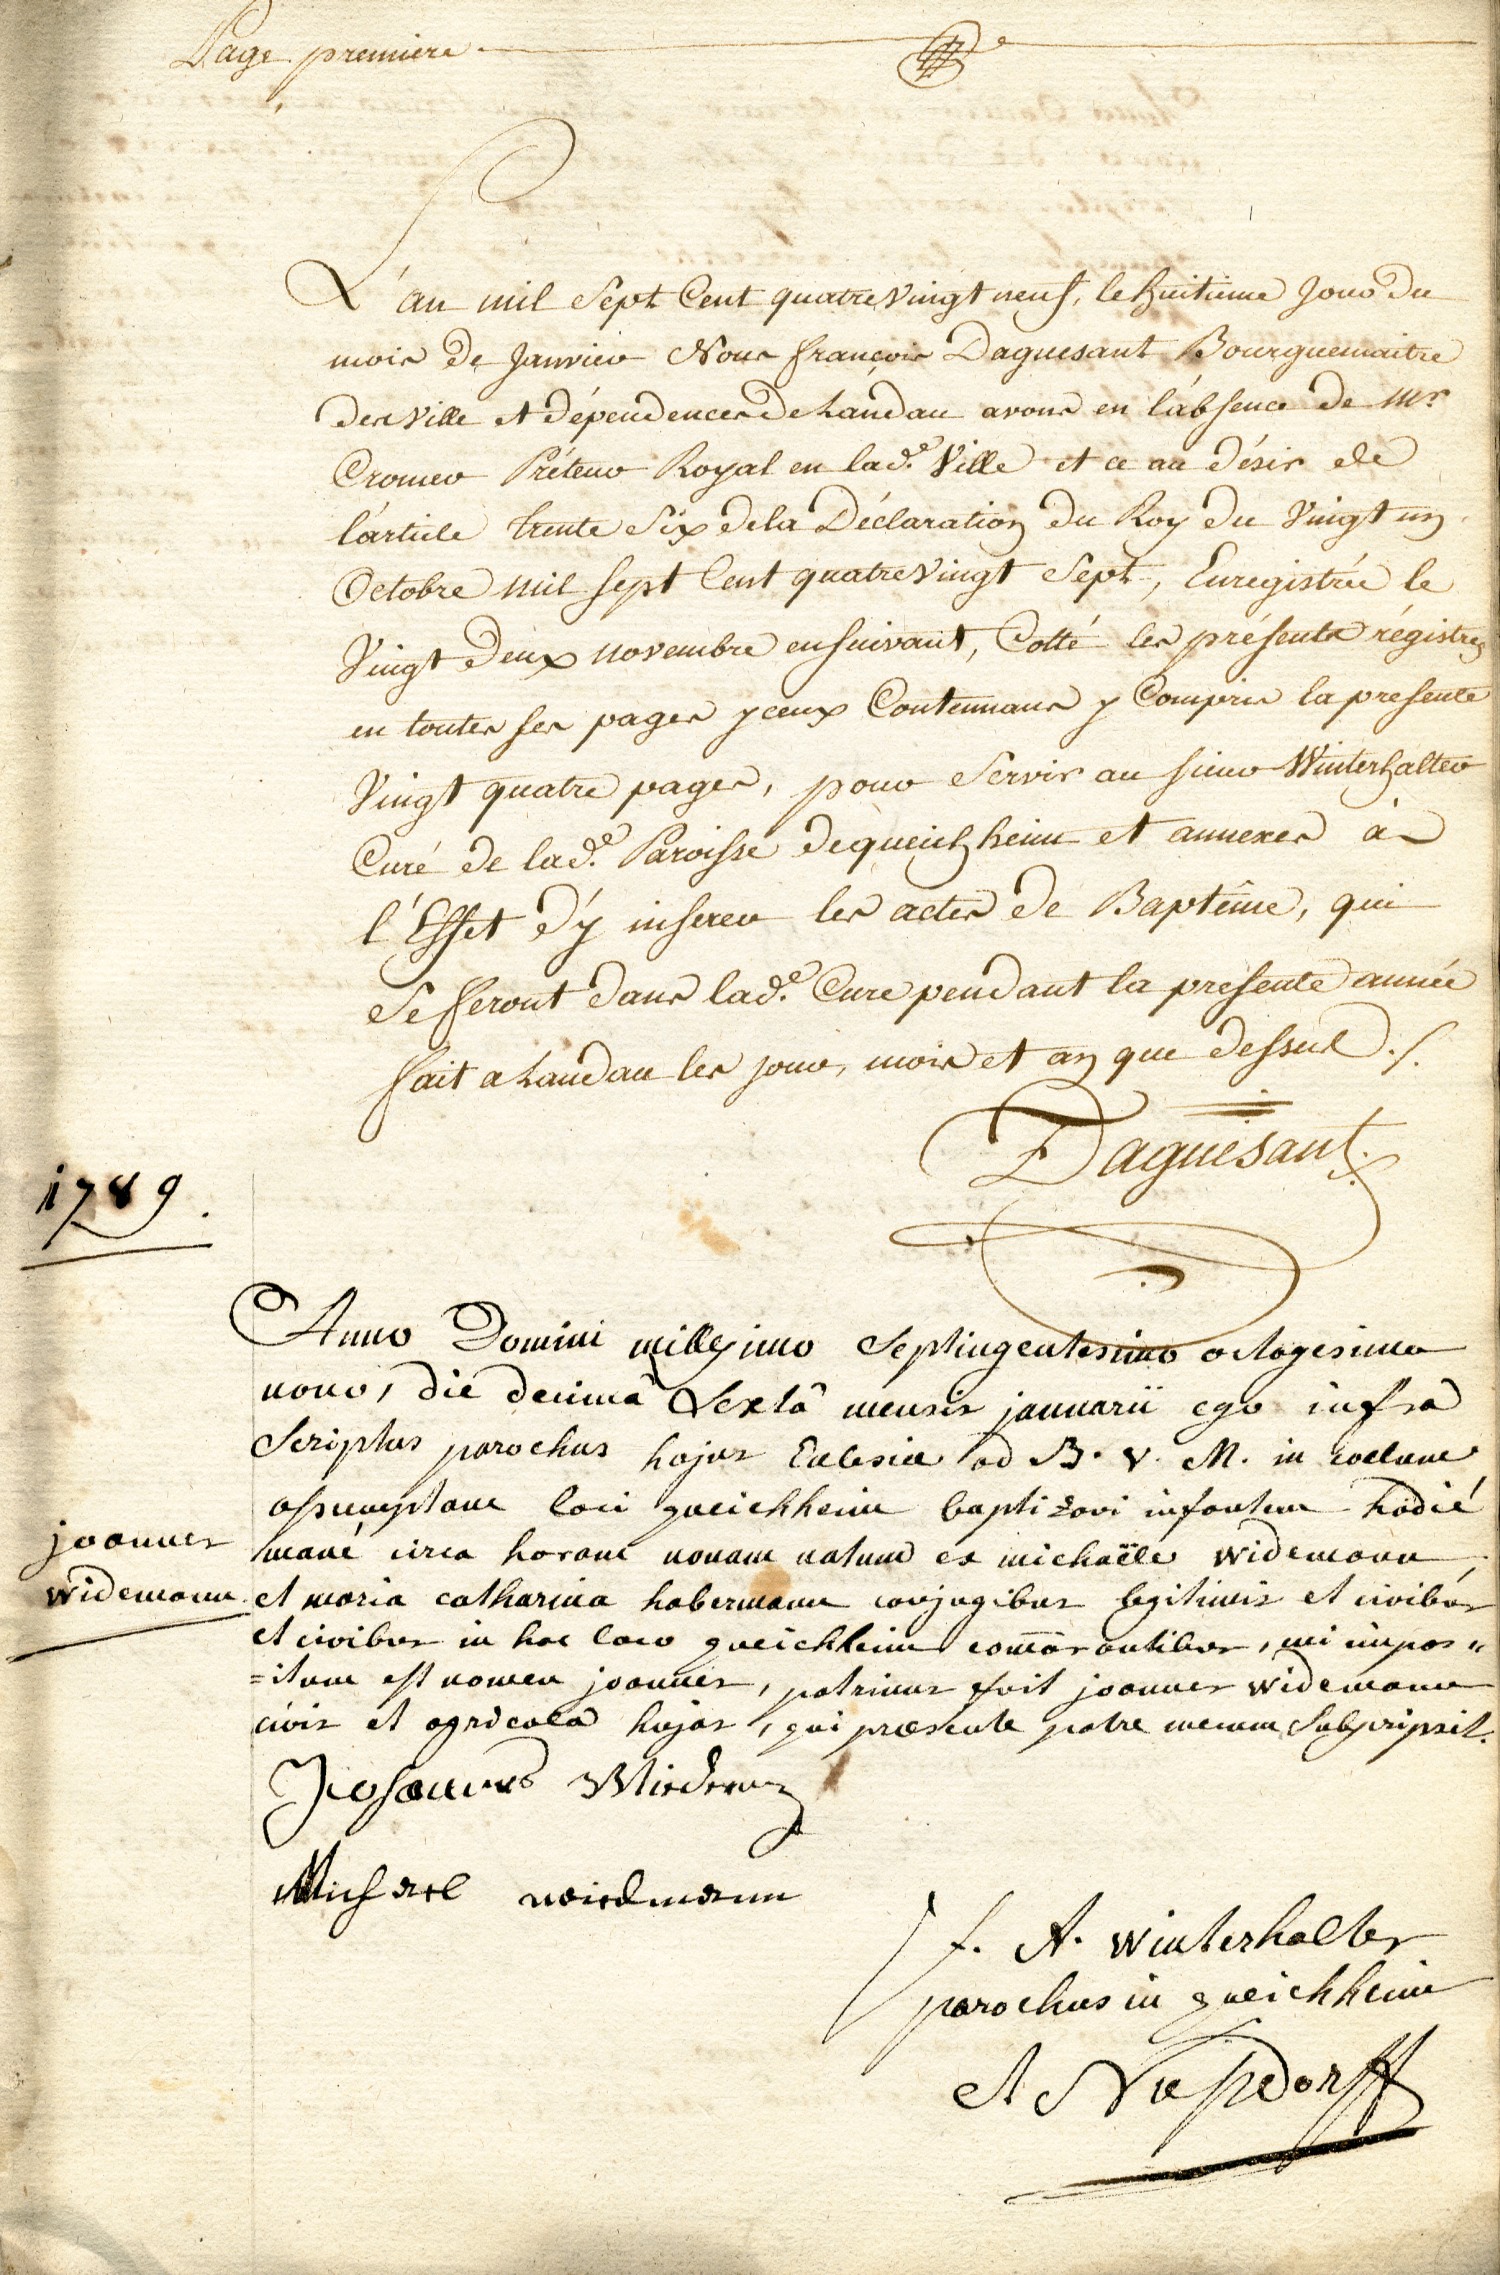 Page premiere
L'an mil Sept Cent quatre Vingt neuf, le huitieme Jour du
mois de Janvier Nous françois Daguesant Bourguemaitre
des Ville et dépendences de Landau avons en l'absence de Mr
Cromer Préteur Royal en lad.e Ville et ce au désir de
l'article trente Six de la Déclaration du Roy du Vingt un
Octobre mil sept Cent quatre Vingt Sept, Enregistrée le
Vingt Deux novembre ensuivant, Cotté les présents régistres
en toutes ses pages yceux Contennans y Compris la presente
Vingt quatre pages, pour Servir au sieur Winterhalter
Curé de lad.e Paroisse de queichheim et annexes à
l'Effet d'y inserer les actes de Baptême, qui
se feront dans lad.e Cure pendant la presente année
fait a Landau les jour, mois et an que dessus ./.
Daguesant
1789.
Anno Domini millesimo Septingentesimo octogesimo
nono, die decimâ Sextâ mensis januarii ego infra
Scriptus parochus hujus Eclesiæ ad B. V. M. in coelum
assumptam loci queichheim baptizavi infantem hodié
joannes
mané circa horam nonam natum ex michaële widemann
widemann
et maria catharina habermann conjugibus legitimis et civibus
et civibus in hoc loco queichheim com̄orantibus, cui impos"
=itum est nomen joannes, patrinus fuit joannes widemann
civis et agricola hujas, qui præsente patre mecum subscripsit.
Johannes Wiedeman
Michael weidmann
f. A. winterhalter
parochus in queichheim
et Nussdorff